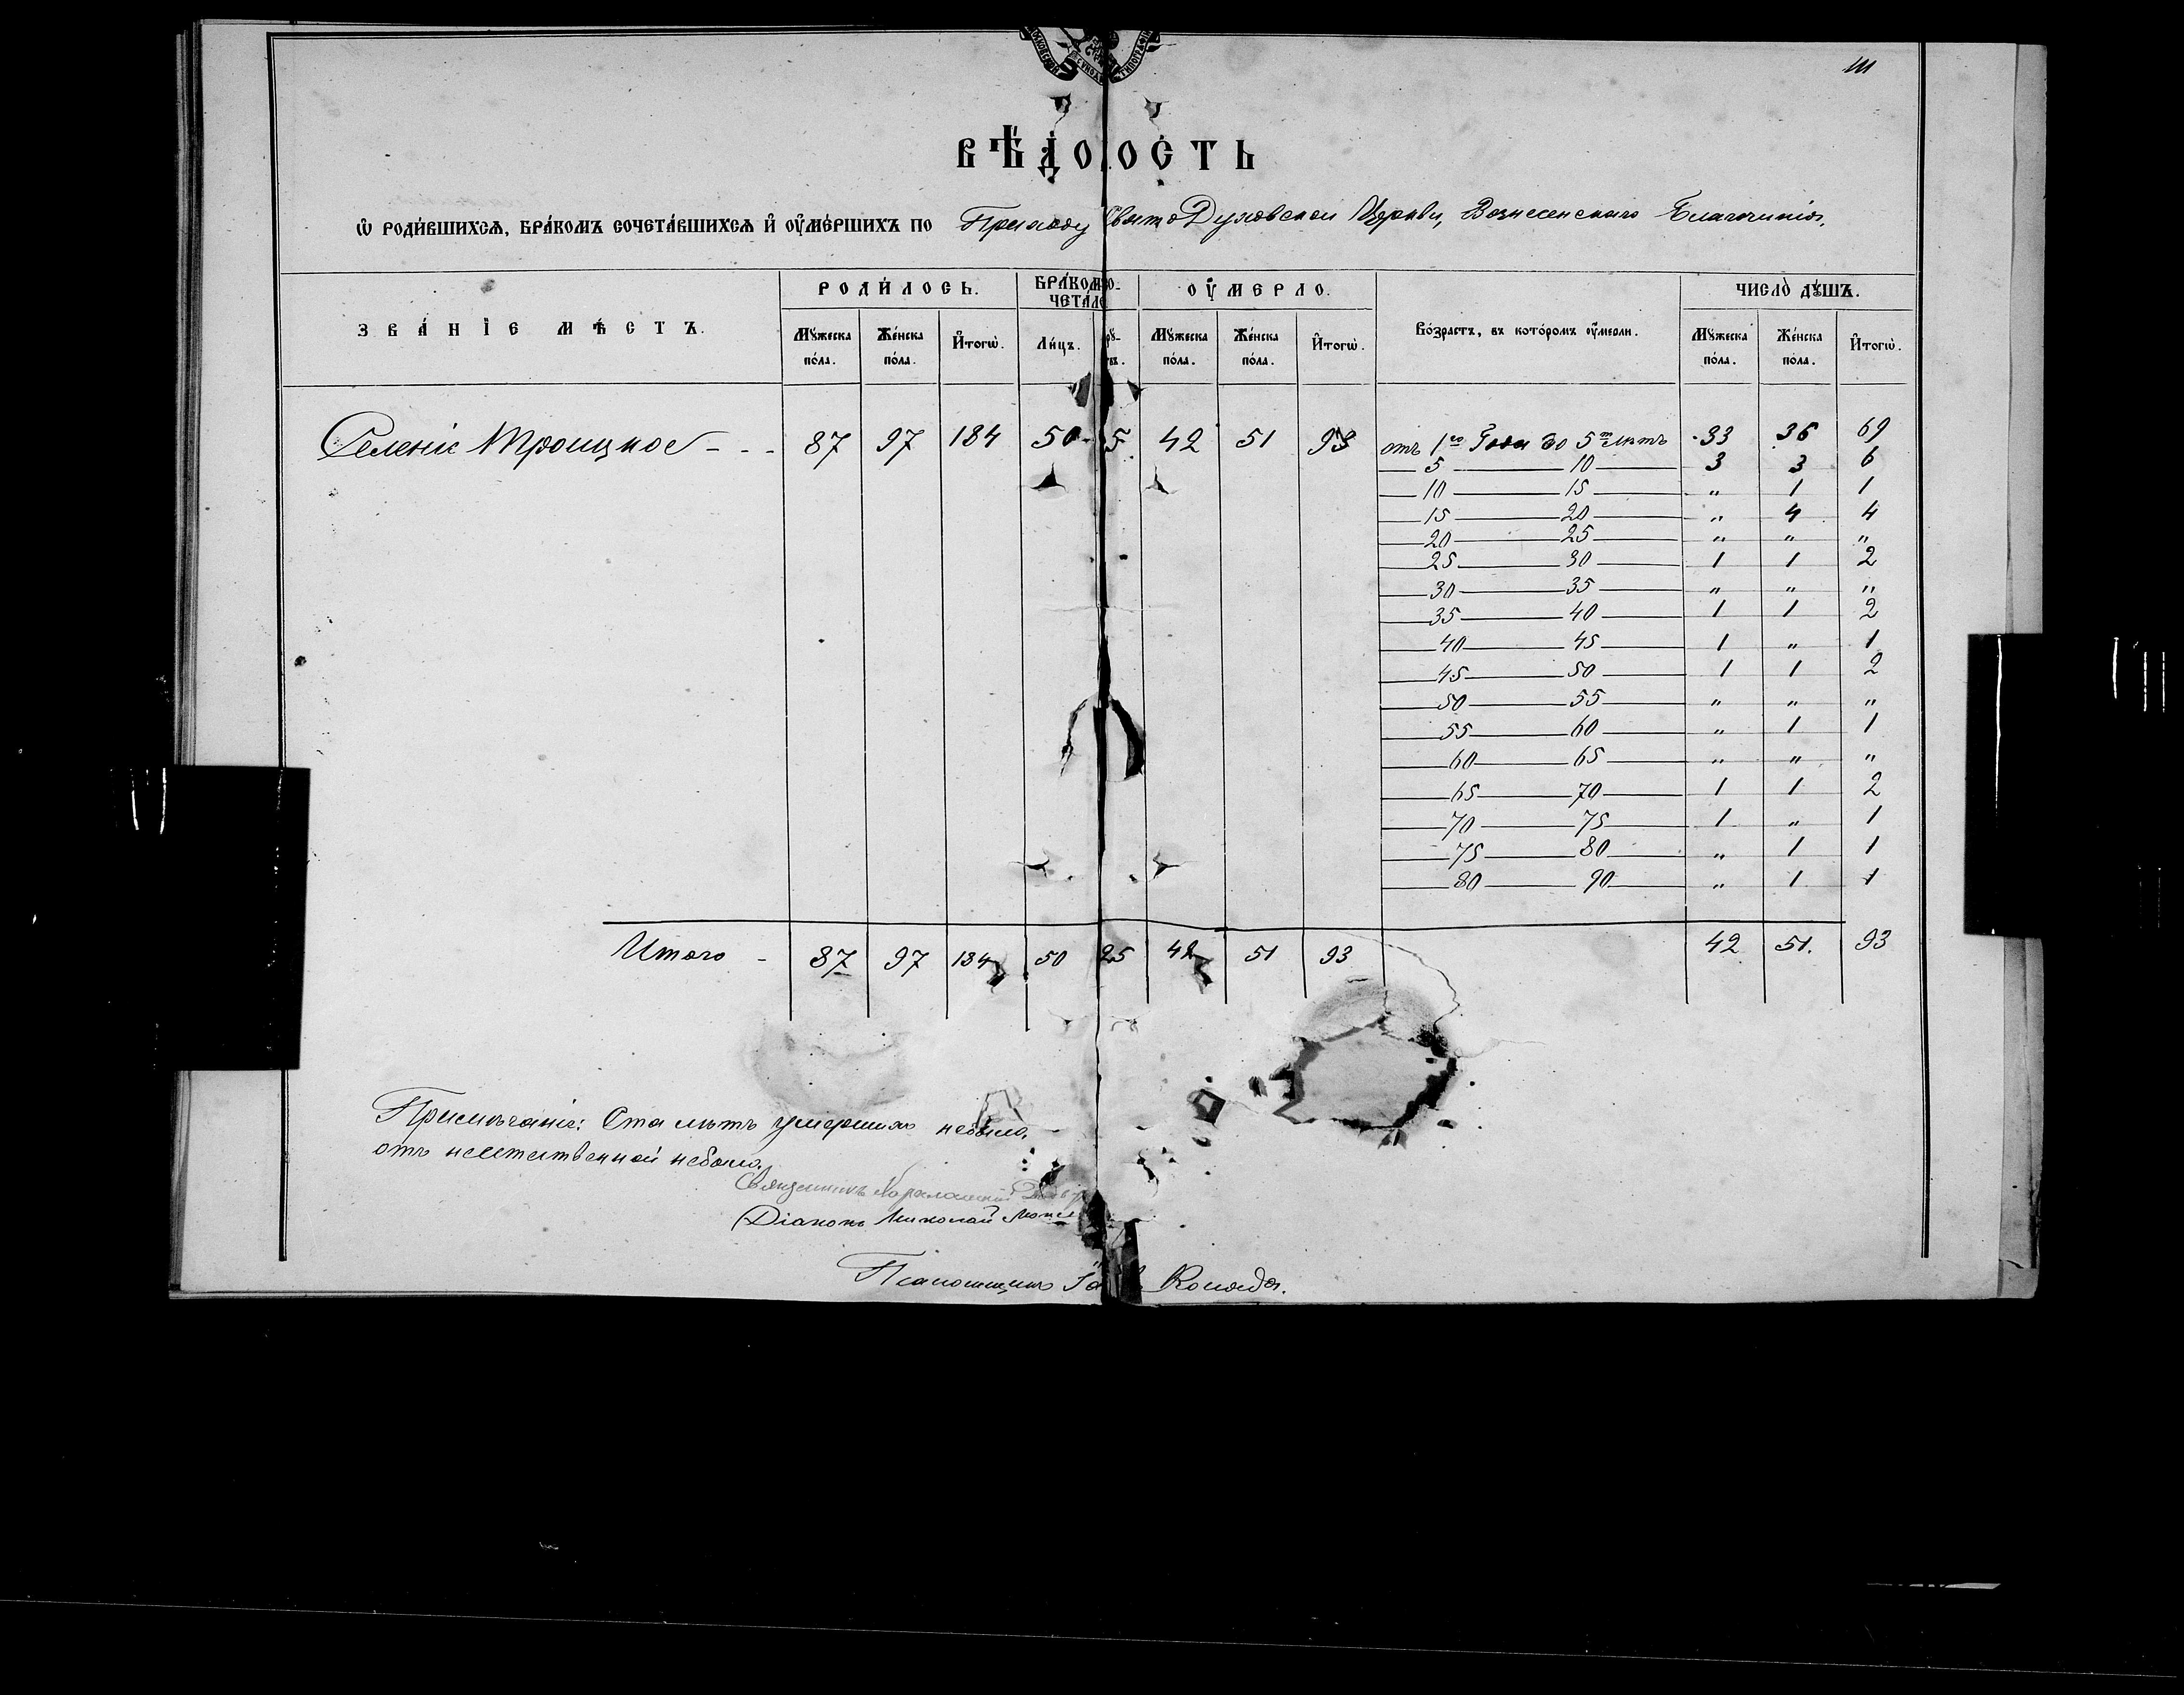 111
ВѢДОМОСТЬ
Ѡ РОДИВШИХСЯ, БРАКОМЪ СОЧЕТАВШИХСЯ И ОУМЕРШИХЪ ПО Приходу Свято Духовской Церкви, Вознесенскаго Благочинія.
ЗВАНІЕ МѢСТЪ. РОДИЛОСЬ. БРАКОМЪ СО- ОУМЕРЛО. Возрастъ, въ которомъ оумерли. ЧИСЛО ДУШЪ.
ЧЕТАЛО
Мужеска Женска Итогѡ. Лицъ. Мужеска Женска Итогѡ. Мужеска Женска Итогѡ.
пола. пола. пола. пола. пола. пола.
Селеніе Троицкое - - - 87 97 184 50 5 42 51 93 отъ 1го Года до 5т лѣтъ 33 36 69
5 — 10 3 3 6
10 — 15 „ 1 1
15 — 20 „ 4 4
20 — 25 „ „ „
25 — 30 1 1 2
30 — 35 „ „ „
35 — 40 1 1 2
40 — 45 1 „ 1
45 — 50 1 1 2
50 — 55 „ „ „
55 — 60 „ 1 1
60 — 65 „ „ „
65 — 70 1 1 2
70 — 75 1 „ 1
75 — 80 „ 1 1
80 — 90 „ 1 1
Итого - 87 97 184 50 25 42 51 93 42 51. 93
Примѣчаніе: Ста лѣтъ умершихъ небыло,
отъ неестественной небыло.
Священникъ
Діаконъ Николай
Псаломщикъ Коляда.